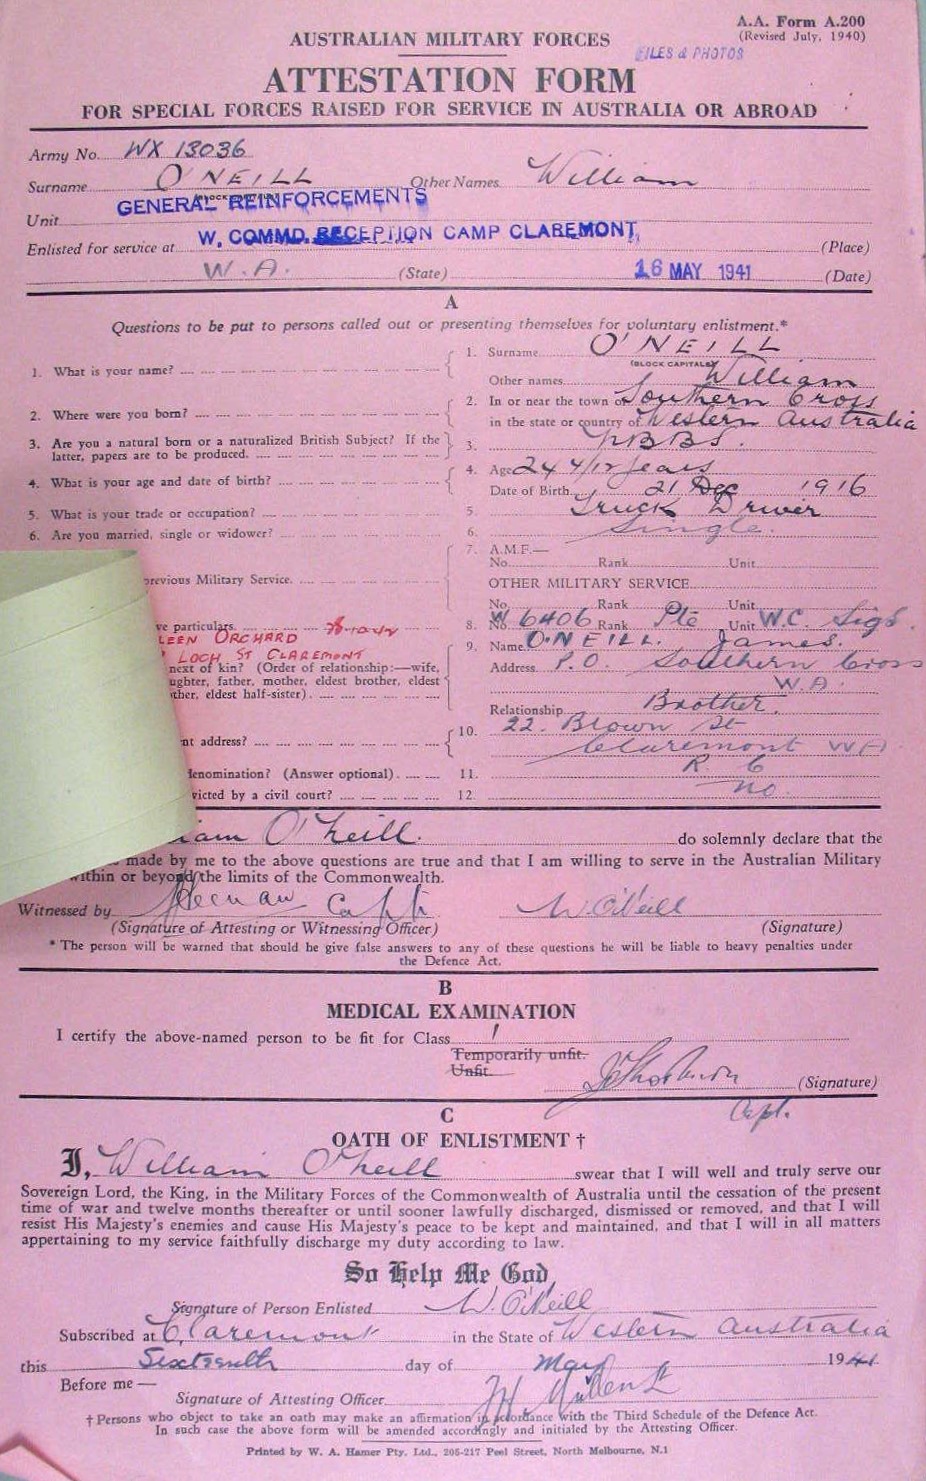 A.A. Form A.200
(Revised July, 1940)
FILES & PHOTOS
AUSTRALIAN MILITARY FORCES
ATTESTATION FORM
FOR SPECIAL FORCES RAISED FOR SERVICE IN AUSTRALIA OR ABROAD
Army No. WX 13036
Surname O'NEILL Other Names William
(BLOCK CAPITALS)
Unit GENERAL REINFORCEMENTS
Enlisted for service at W. COMMD. RECEPTION CAMP CLAREMONT, (Place)
W.A. (State) 16 MAY 1941 (Date)
A
Questions to be put to persons called out or presenting themselves for voluntary enlistment.*
1. What is your name? 1. Surname O'NEILL
(BLOCK CAPITALS)
Other names William
2. Where were you born? 2. In or near the town of Southern Cross
in the state or country of Western Australia
3. Are you a natural born or a naturalized British Subject? If the latter, papers are to be produced. 3. NBBS.
4. What is your age and date of birth? 4. Age 24 4/12 years
Date of Birth 21 Dec 1916
5. What is your trade or occupation? 5. Truck Driver
6. Are you married, single or widower? 6. Single.
previous Military Service. 7. A.M.F.—
No. Rank Unit
OTHER MILITARY SERVICE
No. Rank Unit
ve particulars. 8. No. W 6406 Rank Pte Unit W.C. Sigs.
LEEN ORCHARD
LOCH ST CLAREMONT
next of kin? (Order of relationship:—wife, 9. Name O'NEILL. James.
ughter, father, mother, eldest brother, eldest Address P.O. Southern Cross
ther, eldest half-sister) W.A.
Relationship Brother.
nt address? 10. 22. Brown St
Claremont WA
denomination? (Answer optional). 11. R C
victed by a civil court? 12. no.
iam O'Neill. do solemnly declare that the
made by me to the above questions are true and that I am willing to serve in the Australian Military
within or beyond the limits of the Commonwealth.
Witnessed by Capt W O'Neill
(Signature of Attesting or Witnessing Officer) (Signature)
* The person will be warned that should he give false answers to any of these questions he will be liable to heavy penalties under
the Defence Act.
B
MEDICAL EXAMINATION
I certify the above-named person to be fit for Class 1
Temporarily unfit.
Unfit
(Signature)
Capt.
C
OATH OF ENLISTMENT †
I, William O'Neill swear that I will well and truly serve our
Sovereign Lord, the King, in the Military Forces of the Commonwealth of Australia until the cessation of the present
time of war and twelve months thereafter or until sooner lawfully discharged, dismissed or removed, and that I will
resist His Majesty's enemies and cause His Majesty's peace to be kept and maintained, and that I will in all matters
appertaining to my service faithfully discharge my duty according to law.
So Help Me God,
Signature of Person Enlisted W. O'Neill
Subscribed at Claremont in the State of Western Australia
this Sixteenth day of May 1941
Before me —
Signature of Attesting Officer
† Persons who object to take an oath may make an affirmation in accordance with the Third Schedule of the Defence Act.
In such case the above form will be amended accordingly and initialed by the Attesting Officer.
Printed by W. A. Hamer Pty. Ltd., 205-217 Peel Street, North Melbourne, N.1